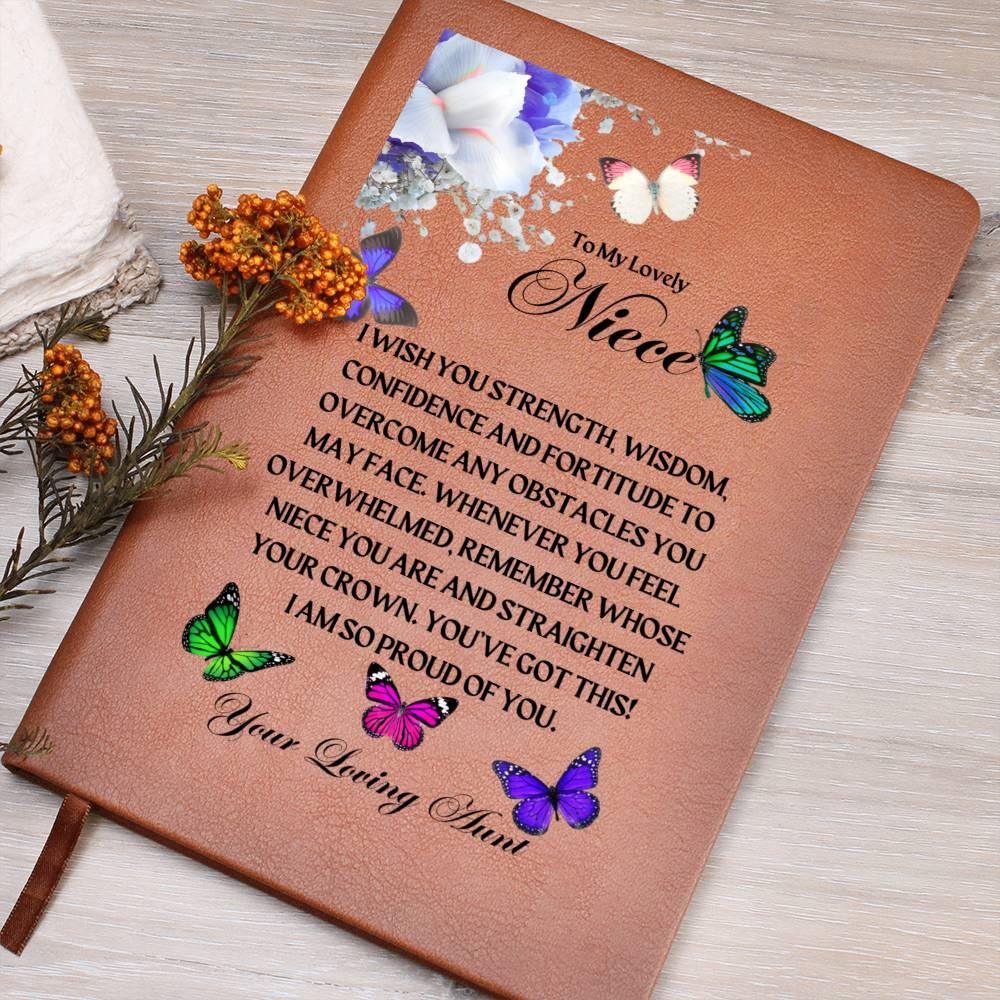 To My Lovely
Niece
I WISH YOU STRENGTH, WISDOM,
CONFIDENCE AND FORTITUDE TO
OVERCOME ANY OBSTACLES YOU
MAY FACE. WHENEVER YOU FEEL
OVERWHELMED, REMEMBER WHOSE
NIECE YOU ARE AND STRAIGHTEN
YOUR CROWN. YOU'VE GOT THIS!
I AM SO PROUD OF YOU.
Your Loving Aunt